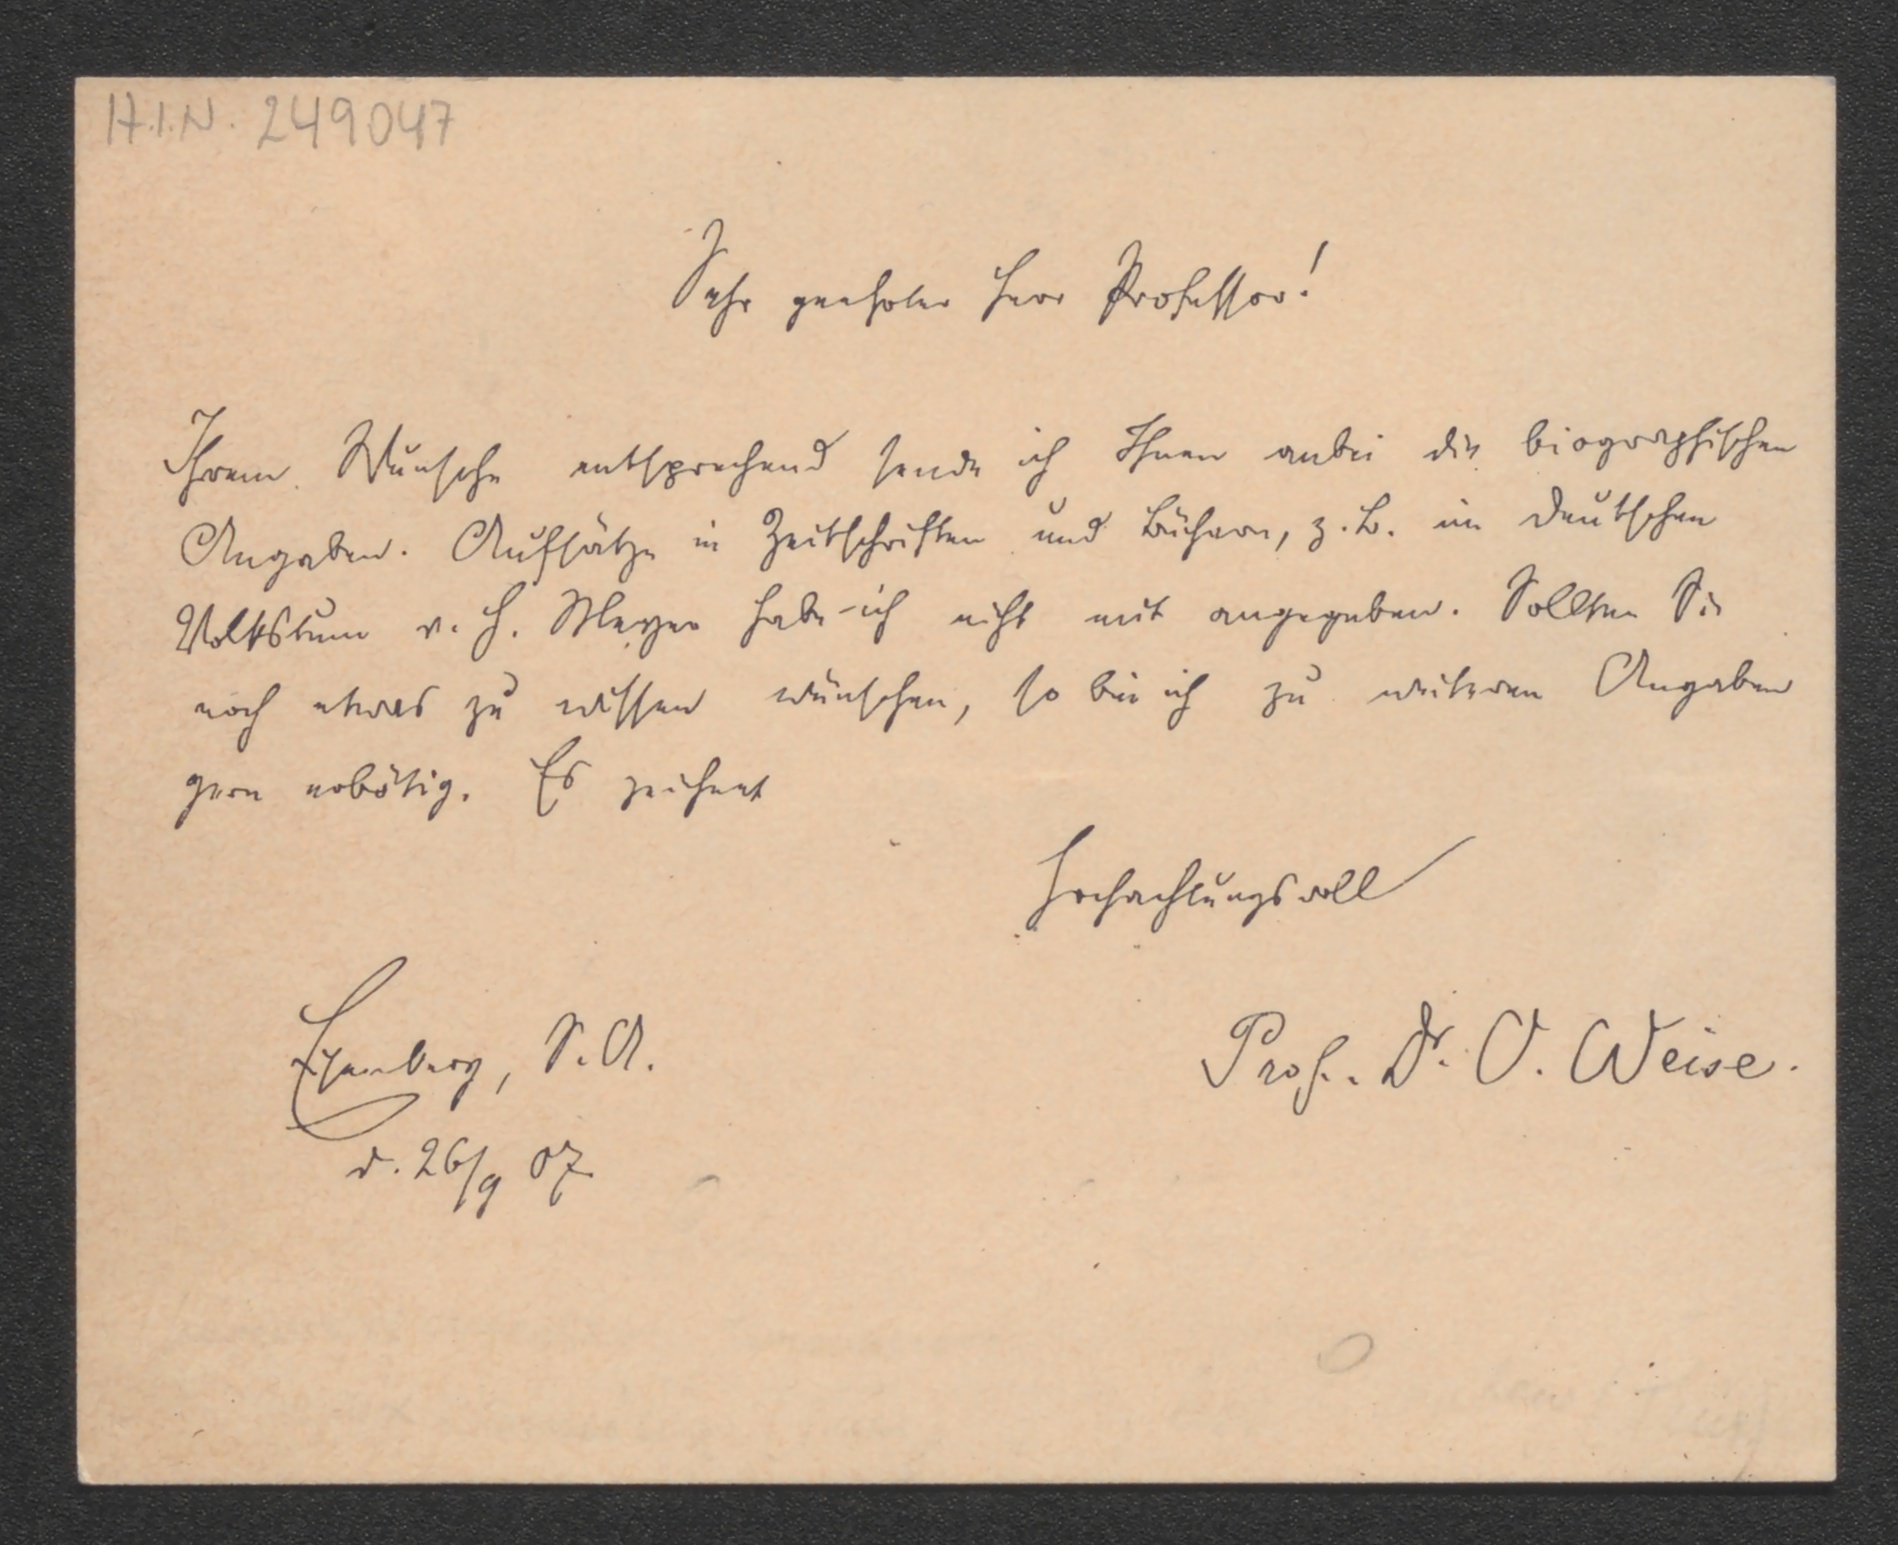 H.I.N. 249047
Sehr geehrter Herr Professor!
Ihrem Wunsche entsprechend sende ich Ihnen anbei die biographischen
Angaben. Aufsätze in Zeitschriften und Büchern, z. B. im deutschen
Volkstum v. H. Meyer habe ich nicht mit angegeben. Sollten Sie
noch etwas zu wissen wünschen, so bin ich zu weiteren Angaben
gern erbötig. Es zeichnet
Hochachtungsvoll
Eisenberg, S. A.
Prof. Dr. O. Weise.
d. 26/9 07